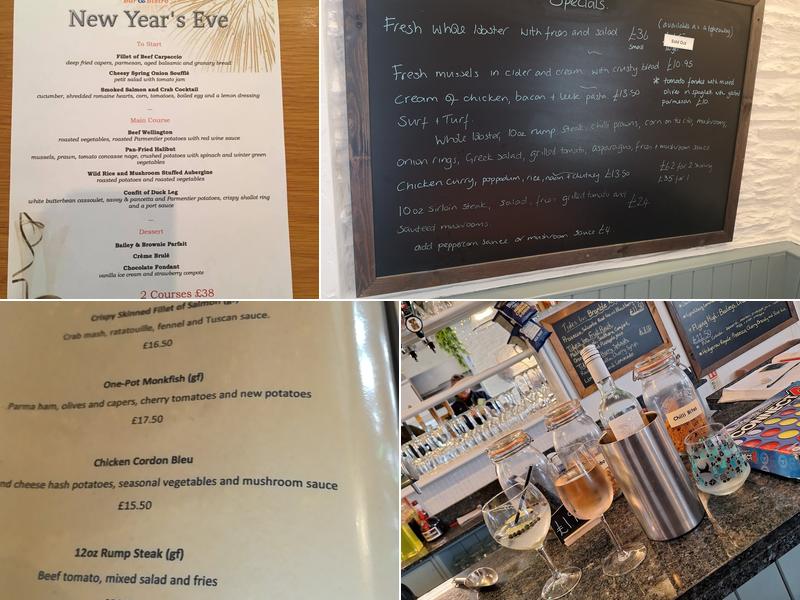 Bar & Bistro
New Year's Eve
To Start
Fillet of Beef Carpaccio
deep fried capers, parmesan, aged balsamic and granary bread
Cheesy Spring Onion Soufflé
petit salad with tomato jam
Smoked Salmon and Crab Cocktail
cucumber, shredded romaine hearts, corn, tomatoes, boiled egg and a lemon dressing
Main Course
Beef Wellington
roasted vegetables, roasted Parmentier potatoes with red wine sauce
Pan-Fried Halibut
mussels, prawn, tomato concasse nage, crushed potatoes with spinach and winter green
vegetables
Wild Rice and Mushroom Stuffed Aubergine
roasted potatoes and roasted vegetables
Confit of Duck Leg
white butterbean cassoulet, savoy & pancetta and Parmentier potatoes, crispy shallot ring
and a port sauce
Dessert
Bailey & Brownie Parfait
Crème Brulé
Chocolate Fondant
vanilla ice cream and strawberry compote
2 Courses £38
Specials
Fresh whole lobster with fries and salad £36 (available as a takeaway)
small
Sold Out
Fresh mussels in cider and cream with crusty bread £10.95
Cream of chicken, bacon + leek pasta £13.50
* tomato fondue with mixed
olives in spaghetti with grated
parmesan £10
Surf + Turf
Whole lobster, 10oz rump steak, chilli prawns, corn on the cob, mushrooms,
onion rings, Greek salad, grilled tomato, asparagus, fries + mushroom sauce
£62 for 2 sharing
£35 for 1
Chicken curry, poppadum, rice, naan + chutney £13.50
10oz sirloin steak, salad, fries grilled tomato and
sauteed mushrooms. £24
add peppercorn sauce or mushroom sauce £4
Crispy Skinned Fillet of Salmon (gf)
Crab mash, ratatouille, fennel and Tuscan sauce.
£16.50
One-Pot Monkfish (gf)
Parma ham, olives and capers, cherry tomatoes and new potatoes
£17.50
Chicken Cordon Bleu
nd cheese hash potatoes, seasonal vegetables and mushroom sauce
£15.50
12oz Rump Steak (gf)
Beef tomato, mixed salad and fries
Tides Inn Bramble
Chilli Bites
CONNECT